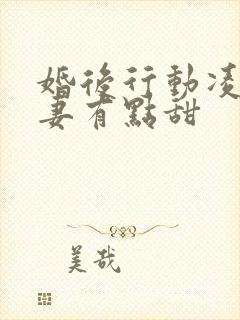 婚後行動凌
妻有點甜
美哉